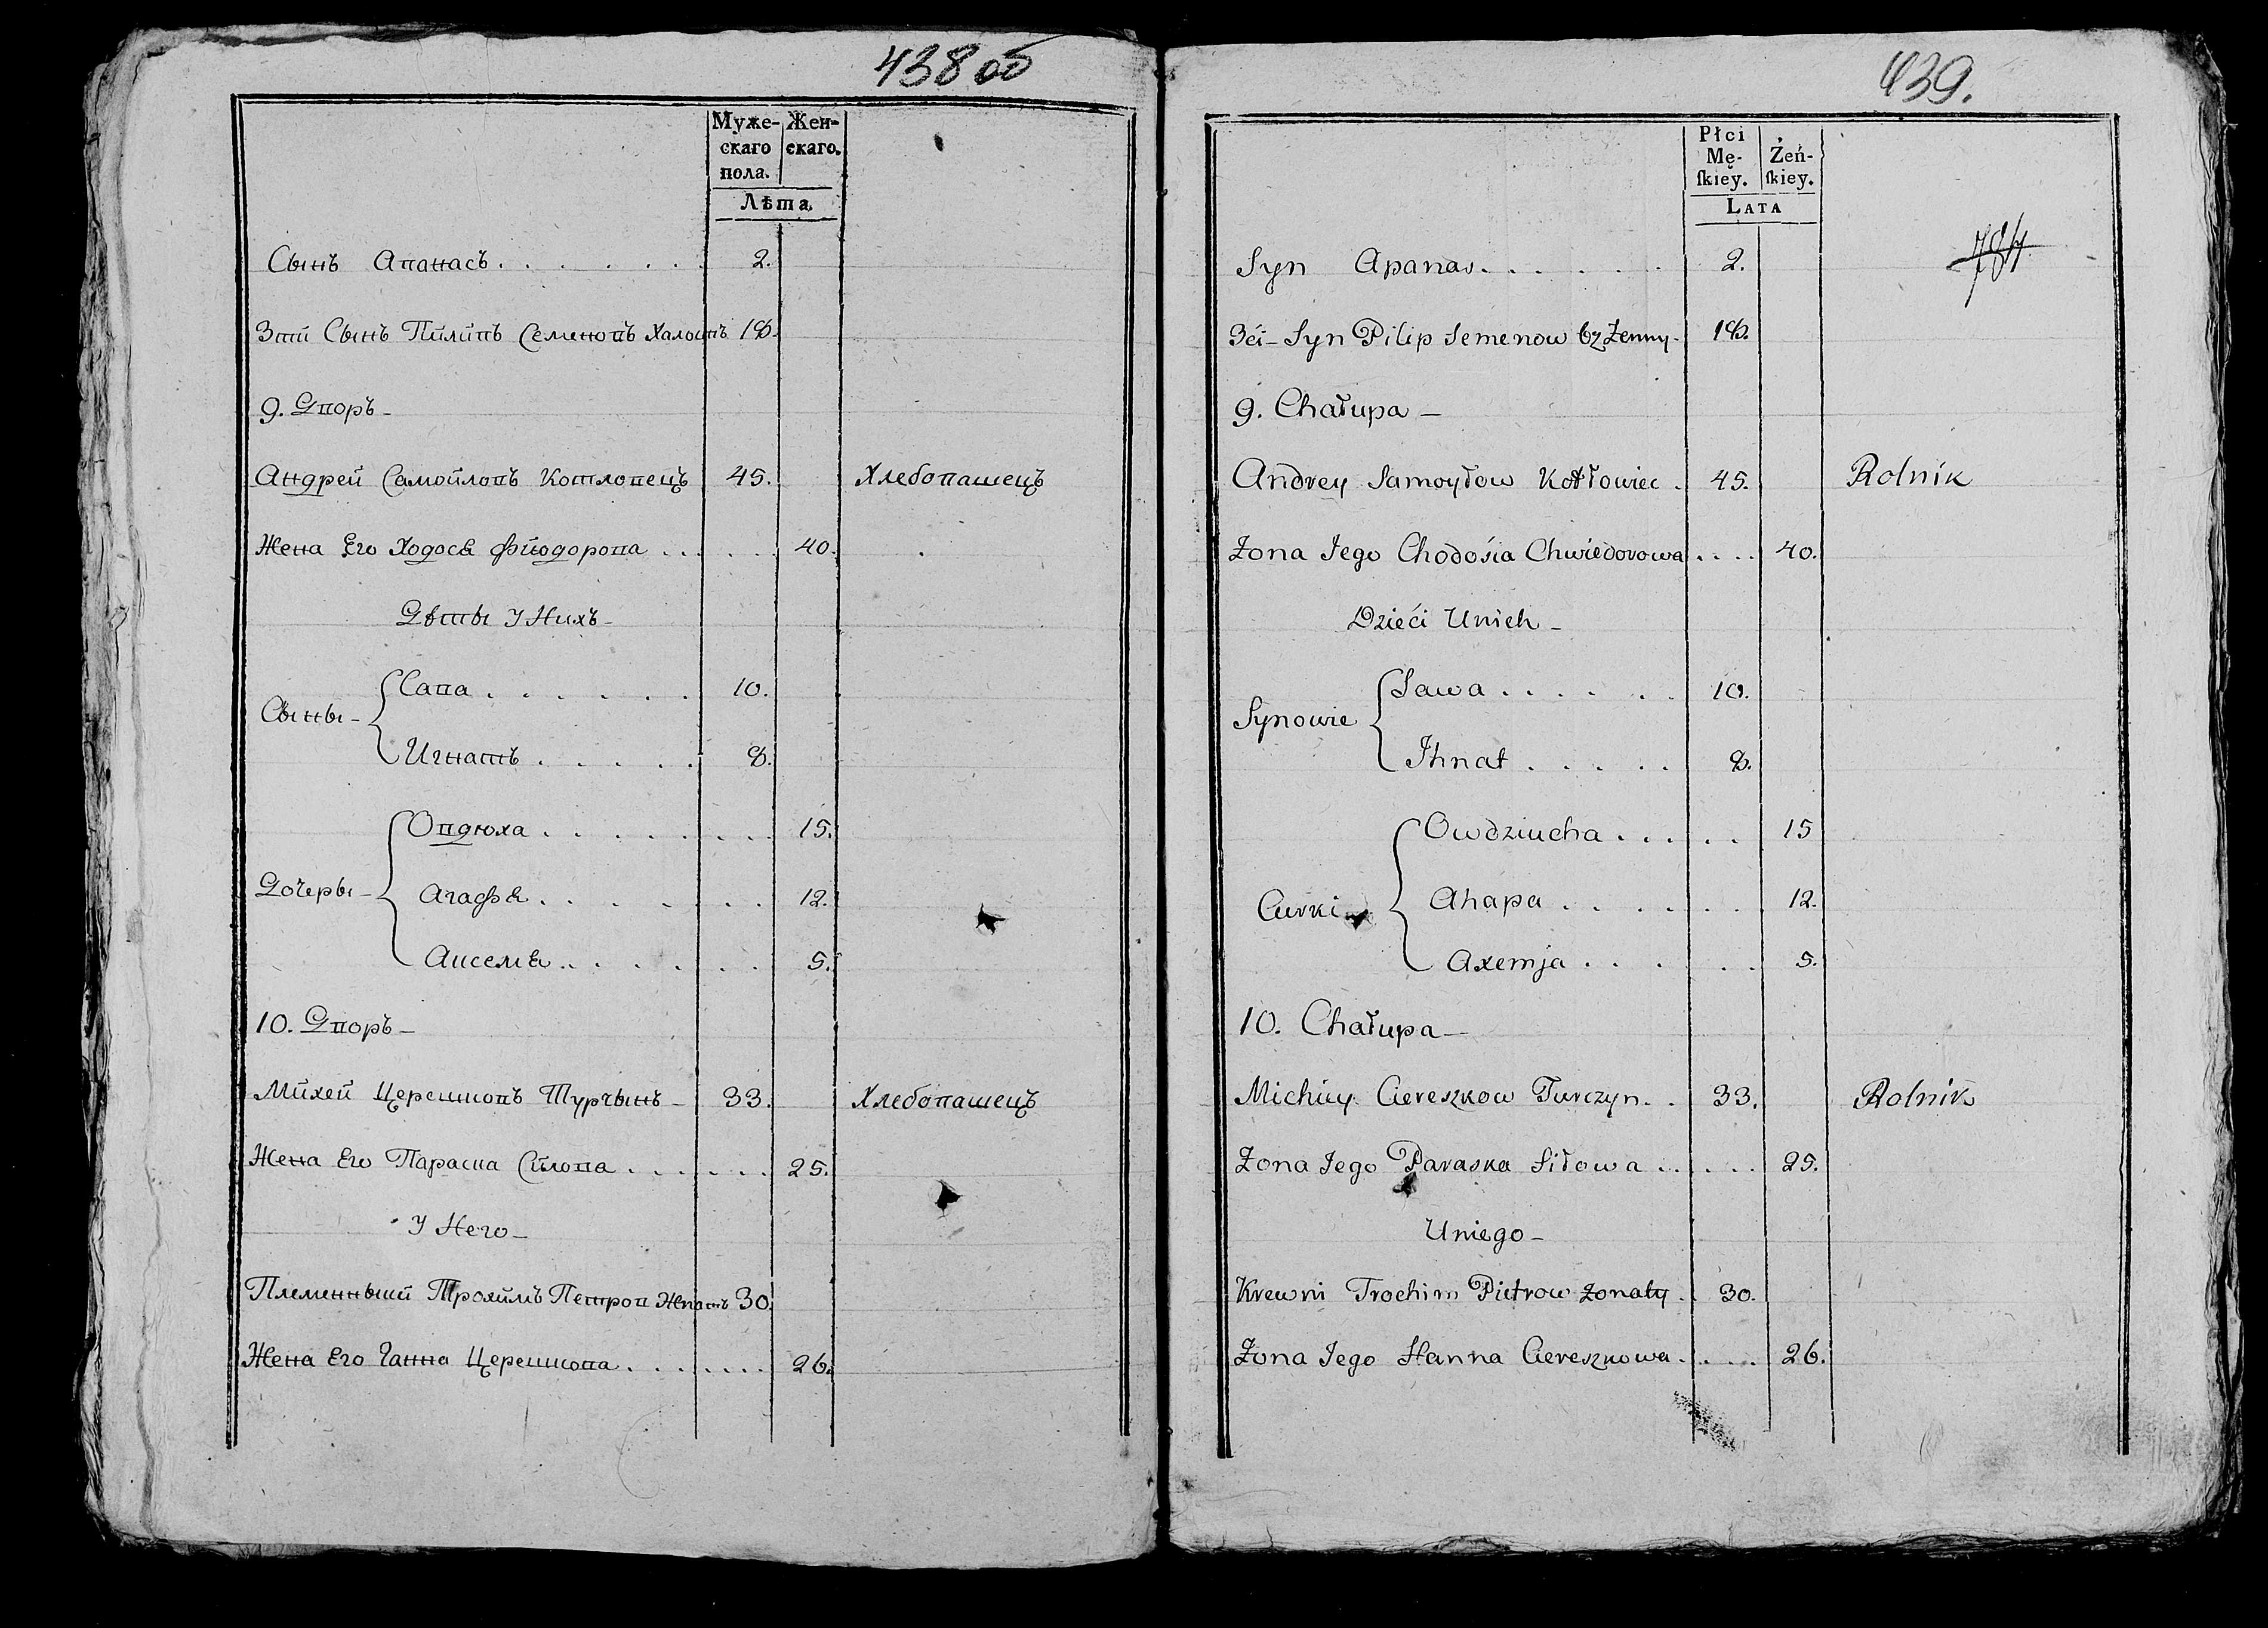 438 об
Муже- Жен-
скаго скаго.
пола.
Лѣта
Сынъ Апанасъ . . . . . . . 2.
3тй Сынъ Пилипъ Семеновъ Халостъ 18.
9. Дворъ –
Андрей Самойловъ Котловецъ 45. Хлебопашецъ
Жена Его Ходося Фйодорова . . . . . . 40.
Дѣты У Нихъ –
Сыны –
Сава . . . . . . 10.
Игнатъ . . . . . 8.
Дочеры –
Овдюха . . . . . . . . 15.
Агафя . . . . . . . 12.
Аксемя . . . . . . . 5.
10. Дворъ –
Михей Церешковъ Турчынъ – 33. Хлебопашецъ
Жена Его Параска Силова . . . . . . 25.
У Него –
Племенный Трохимъ Петров Жнатъ 30.
Жена Его Ганна Церешкова . . . . . . . 26.
439.
Płci Żeń-
Mę- skiey.
skiey.
LATA
784
Syn Apanas . . . . . . 2.
3ći – Syn Pilip Semenow bz Żenny – 18.
9. Chałupa –
Andrey Samoyłow Kotłowiec . 45. Rolnik
Żona Jego Chodośia Chwiedorowa . . . . 40.
Dzieći Unich –
Synowie
Sawa . . . . . . 10.
Ihnat . . . . . 8.
Curki
Owdziucha . . . . . 15
Ahapa . . . . . . 12.
Axemja . . . . . 5.
10. Chałupa –
Michiey Ciereszkow Turczyn . . 33. Rolnik
Żona Jego Paraska Siłowa . . . . . 25.
Uniego –
Krewni Trochim Pietrow żonaty . 30.
Żona Jego Hanna Ciereszkowa . . . . 26.